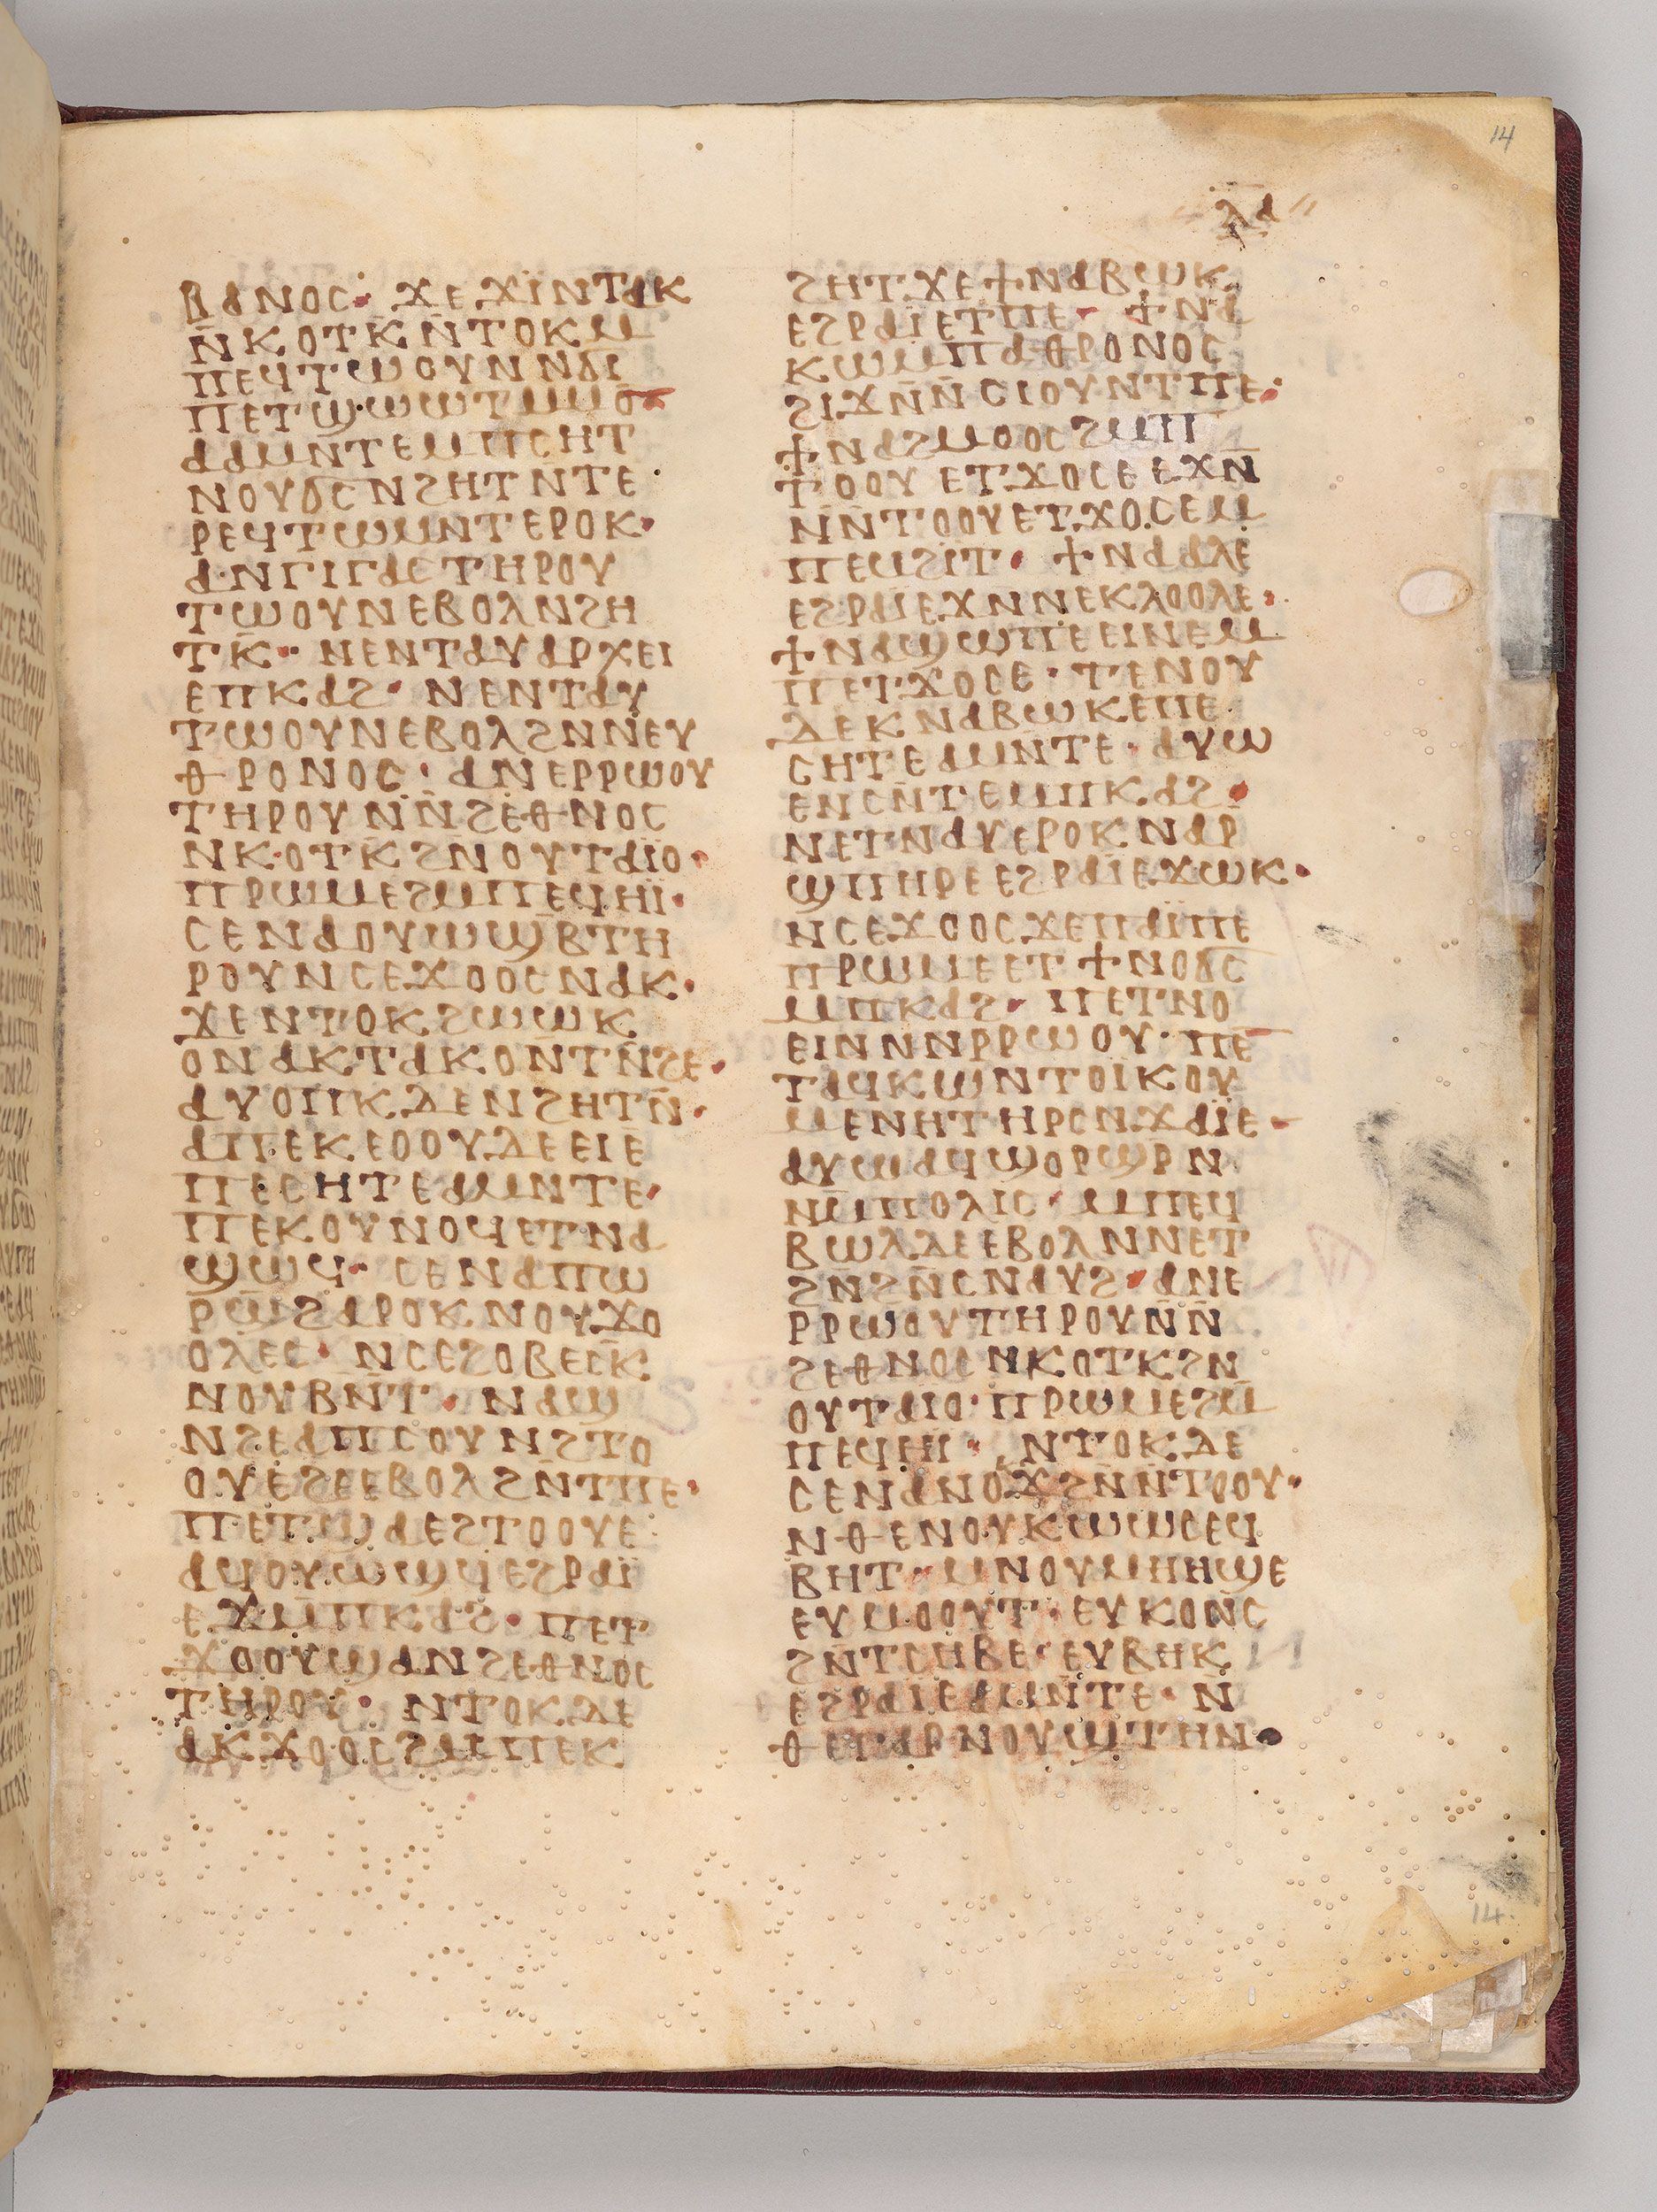 14
ⲗⲁ
ⲃⲁⲛⲟⲥ· ϫⲉϫⲓⲛⲧⲁⲕ
ⲛ̄ⲕⲟⲧⲕ̄ⲛ̄ⲧⲟⲕⲙ
ⲡⲉϥⲧⲱⲟⲩⲛⲛϭⲓ
ⲡⲉⲧϣⲱⲱⲧⲙⲙⲟ̄
ⲁⲁⲙⲛ̄ⲧⲉⲙⲡⲥⲏⲧ
ⲛⲟⲩϭⲥⲛϩⲏⲧⲛⲧⲉ
ⲣⲉϥⲧⲱⲙⲛⲧⲉⲣⲟⲕ·
ⲁⲛⲅⲓⲅⲁⲥⲧⲏⲣⲟⲩ
ⲧⲱⲟⲩⲛⲉⲃⲟⲗⲛϩⲏ
ⲧⲕ̄· ⲛⲉⲛⲧⲁⲩⲁⲣⲭⲉⲓ
ⲉⲡⲕⲁϩ· ⲛⲉⲛⲧⲁⲩ
ⲧⲱⲟⲩⲛⲉⲃⲟⲗϩⲛⲛⲉⲩ
ⲑⲣⲟⲛⲟⲥ· ⲁⲛⲉⲣⲣⲱⲟⲩ
ⲧⲏⲣⲟⲩⲛ̄ⲛ̄ϩⲉⲑⲛⲟⲥ
ⲛⲕⲟⲧⲕϩⲛⲟⲩⲧⲁⲓ̈ⲟ·
ⲡⲣⲱⲙⲉϩⲙⲡⲉϥⲏⲓ̈·
ⲥⲉⲛⲁⲟⲩⲱϣⲃ̄ⲧⲏ
ⲣⲟⲩⲛⲥⲉϫⲟⲟⲥⲛⲁⲕ·
ϫⲉⲛⲧⲟⲕϩⲱⲱⲕ
ⲟⲛⲁⲕⲧⲁⲕⲟⲛ̄ⲧⲛ̄ϩⲉ·
ⲁⲩⲟⲡⲕⲇⲉⲛϩⲏⲧⲛ̄·
ⲁⲡⲉⲕⲉⲟⲟⲩⲇⲉⲉⲓⲉ
ⲡⲉⲥⲏⲧⲉⲁⲙⲛⲧⲉ·
ⲡⲉⲕⲟⲩⲛⲟϥⲉⲧⲛⲁ
ϣⲱϥ· ⲥⲉⲛⲁⲡⲱ
ⲣϣ̄ϩⲁⲣⲟⲕⲛⲟⲩϫⲟ
ⲟⲗⲉⲥ· ⲛⲥⲉϩⲟⲃⲉⲥⲕ̄
ⲛⲟⲩⲃⲛ̄ⲧ· ⲛⲁϣ
ⲛϩⲉⲁⲡⲥⲟⲩⲛϩⲧⲟ
ⲟⲩⲉϩⲉⲉⲃⲟⲗϩⲛ̄ⲧⲡⲉ·
ⲡⲉⲧϣⲁⲉϩⲧⲟⲟⲩⲉ
ⲁϥⲟⲩⲱϣϥⲉϩⲣⲁⲓ̈
ⲉϫⲙ̄ⲡⲕⲁϩ· ⲡⲉⲧ
ϫⲟⲟⲩϣⲁⲛϩⲉⲑⲛⲟⲥ
ⲧⲏⲣⲟⲩ· ⲛⲧⲟⲕⲇⲉ
ⲁⲕϫⲟⲟⲥϩⲙⲡⲉⲕ
ϩⲏⲧϫⲉϯⲛⲁⲃⲱⲕ
ⲉϩⲣⲁⲓ̈ⲉⲧⲡⲉ· ϯⲛⲁ
ⲕⲱⲙⲡⲁⲑⲣⲟⲛⲟⲥ
ϩⲓϫⲛ̄ⲛ̄ⲥⲓⲟⲩⲛⲧⲡⲉ·
ϯⲛⲁϩⲙⲟⲟⲥϩⲙⲡ
ⲧⲟⲟⲩⲉⲧϫⲟⲥⲉⲉϫⲛ̄
ⲛ̄ⲛ̄ⲧⲟⲟⲩⲉⲧϫⲟⲥⲉⲙ
ⲡⲉⲙϩⲓⲧ· ϯⲛⲁⲁⲗⲉ
ⲉϩⲣⲁⲓⲉϫⲛⲛⲉⲕⲗⲟⲟⲗⲉ·
ϯⲛⲁϣⲱⲡⲉⲉⲓⲛⲉⲙ
ⲡⲉⲧϫⲟⲥⲉ· ⲧⲉⲛⲟⲩ
ⲇⲉⲕⲛⲁⲃⲱⲕⲉⲡⲉ
ⲥⲏⲧⲉⲁⲙⲛ̄ⲧⲉ· ⲁⲩⲱ
ⲉⲛⲥⲛ̄ⲧⲉⲙⲡⲕⲁϩ·
ⲛⲉⲧⲛⲁⲩⲉⲣⲟⲕⲛⲁⲣ̄
ϣⲡⲏⲣⲉⲉϩⲣⲁⲓⲉϫⲱⲕ·
ⲛⲥⲉϫⲟⲟⲥϫⲉⲡⲁⲓ̈ⲡⲉ
ⲡⲣⲱⲙⲉⲉⲧϯⲛⲟϭⲥ
ⲙⲡⲕⲁϩ· ⲡⲉⲧⲛⲟ
ⲉⲓⲛⲛⲛⲣⲣⲱⲟⲩ· ⲡⲉ̄
ⲧⲁϥⲕⲱⲛⲧⲟⲓⲕⲟⲩ
ⲙⲉⲛⲏⲧⲏⲣⲥⲛϫⲁⲓ̈ⲉ·
ⲁⲩⲱⲁϥϣⲟⲣϣⲣⲛ
ⲛⲙ̄ⲡⲟⲗⲓⲥ· ⲙⲡⲉϥ
ⲃⲱⲗⲇⲉⲉⲃⲟⲗⲛⲛⲉⲧ
ϩⲛϩⲛ̄ⲥⲛⲁⲩϩ· ⲁⲛⲉ
ⲣⲣⲱⲟⲩⲧⲏⲣⲟⲩⲛ̄ⲛ̄
ϩⲉⲑⲛⲟⲥⲛⲕⲟⲧⲕϩⲛ
ⲟⲩⲧⲁⲓⲟ· ⲡⲣⲱⲙⲉϩⲙ̄
ⲡⲉϥⲏⲓ· ⲛⲧⲟⲕⲇⲉ
ⲥⲉⲛⲁⲛⲟϫϩⲛ̄ⲛ̄ⲧⲟⲟⲩ·
ⲛⲑⲉⲛⲟⲩⲕⲱⲱⲥⲉϥ
ⲃⲏⲧ· ⲙⲛⲟⲩⲙⲏⲏϣⲉ
ⲉⲩⲙⲟⲟⲩⲧ· ⲉⲩⲕⲟⲛ̄ⲥ
ϩⲛ̄ⲧⲥⲏⲃⲉ· ⲉⲩⲃⲏⲕ
ⲉϩⲣⲁⲓⲉⲁⲙⲛ̄ⲧⲉ· ⲛ̄
ⲑⲉⲓⲧⲁⲣⲛⲟⲩϣⲧⲏⲛ·
14